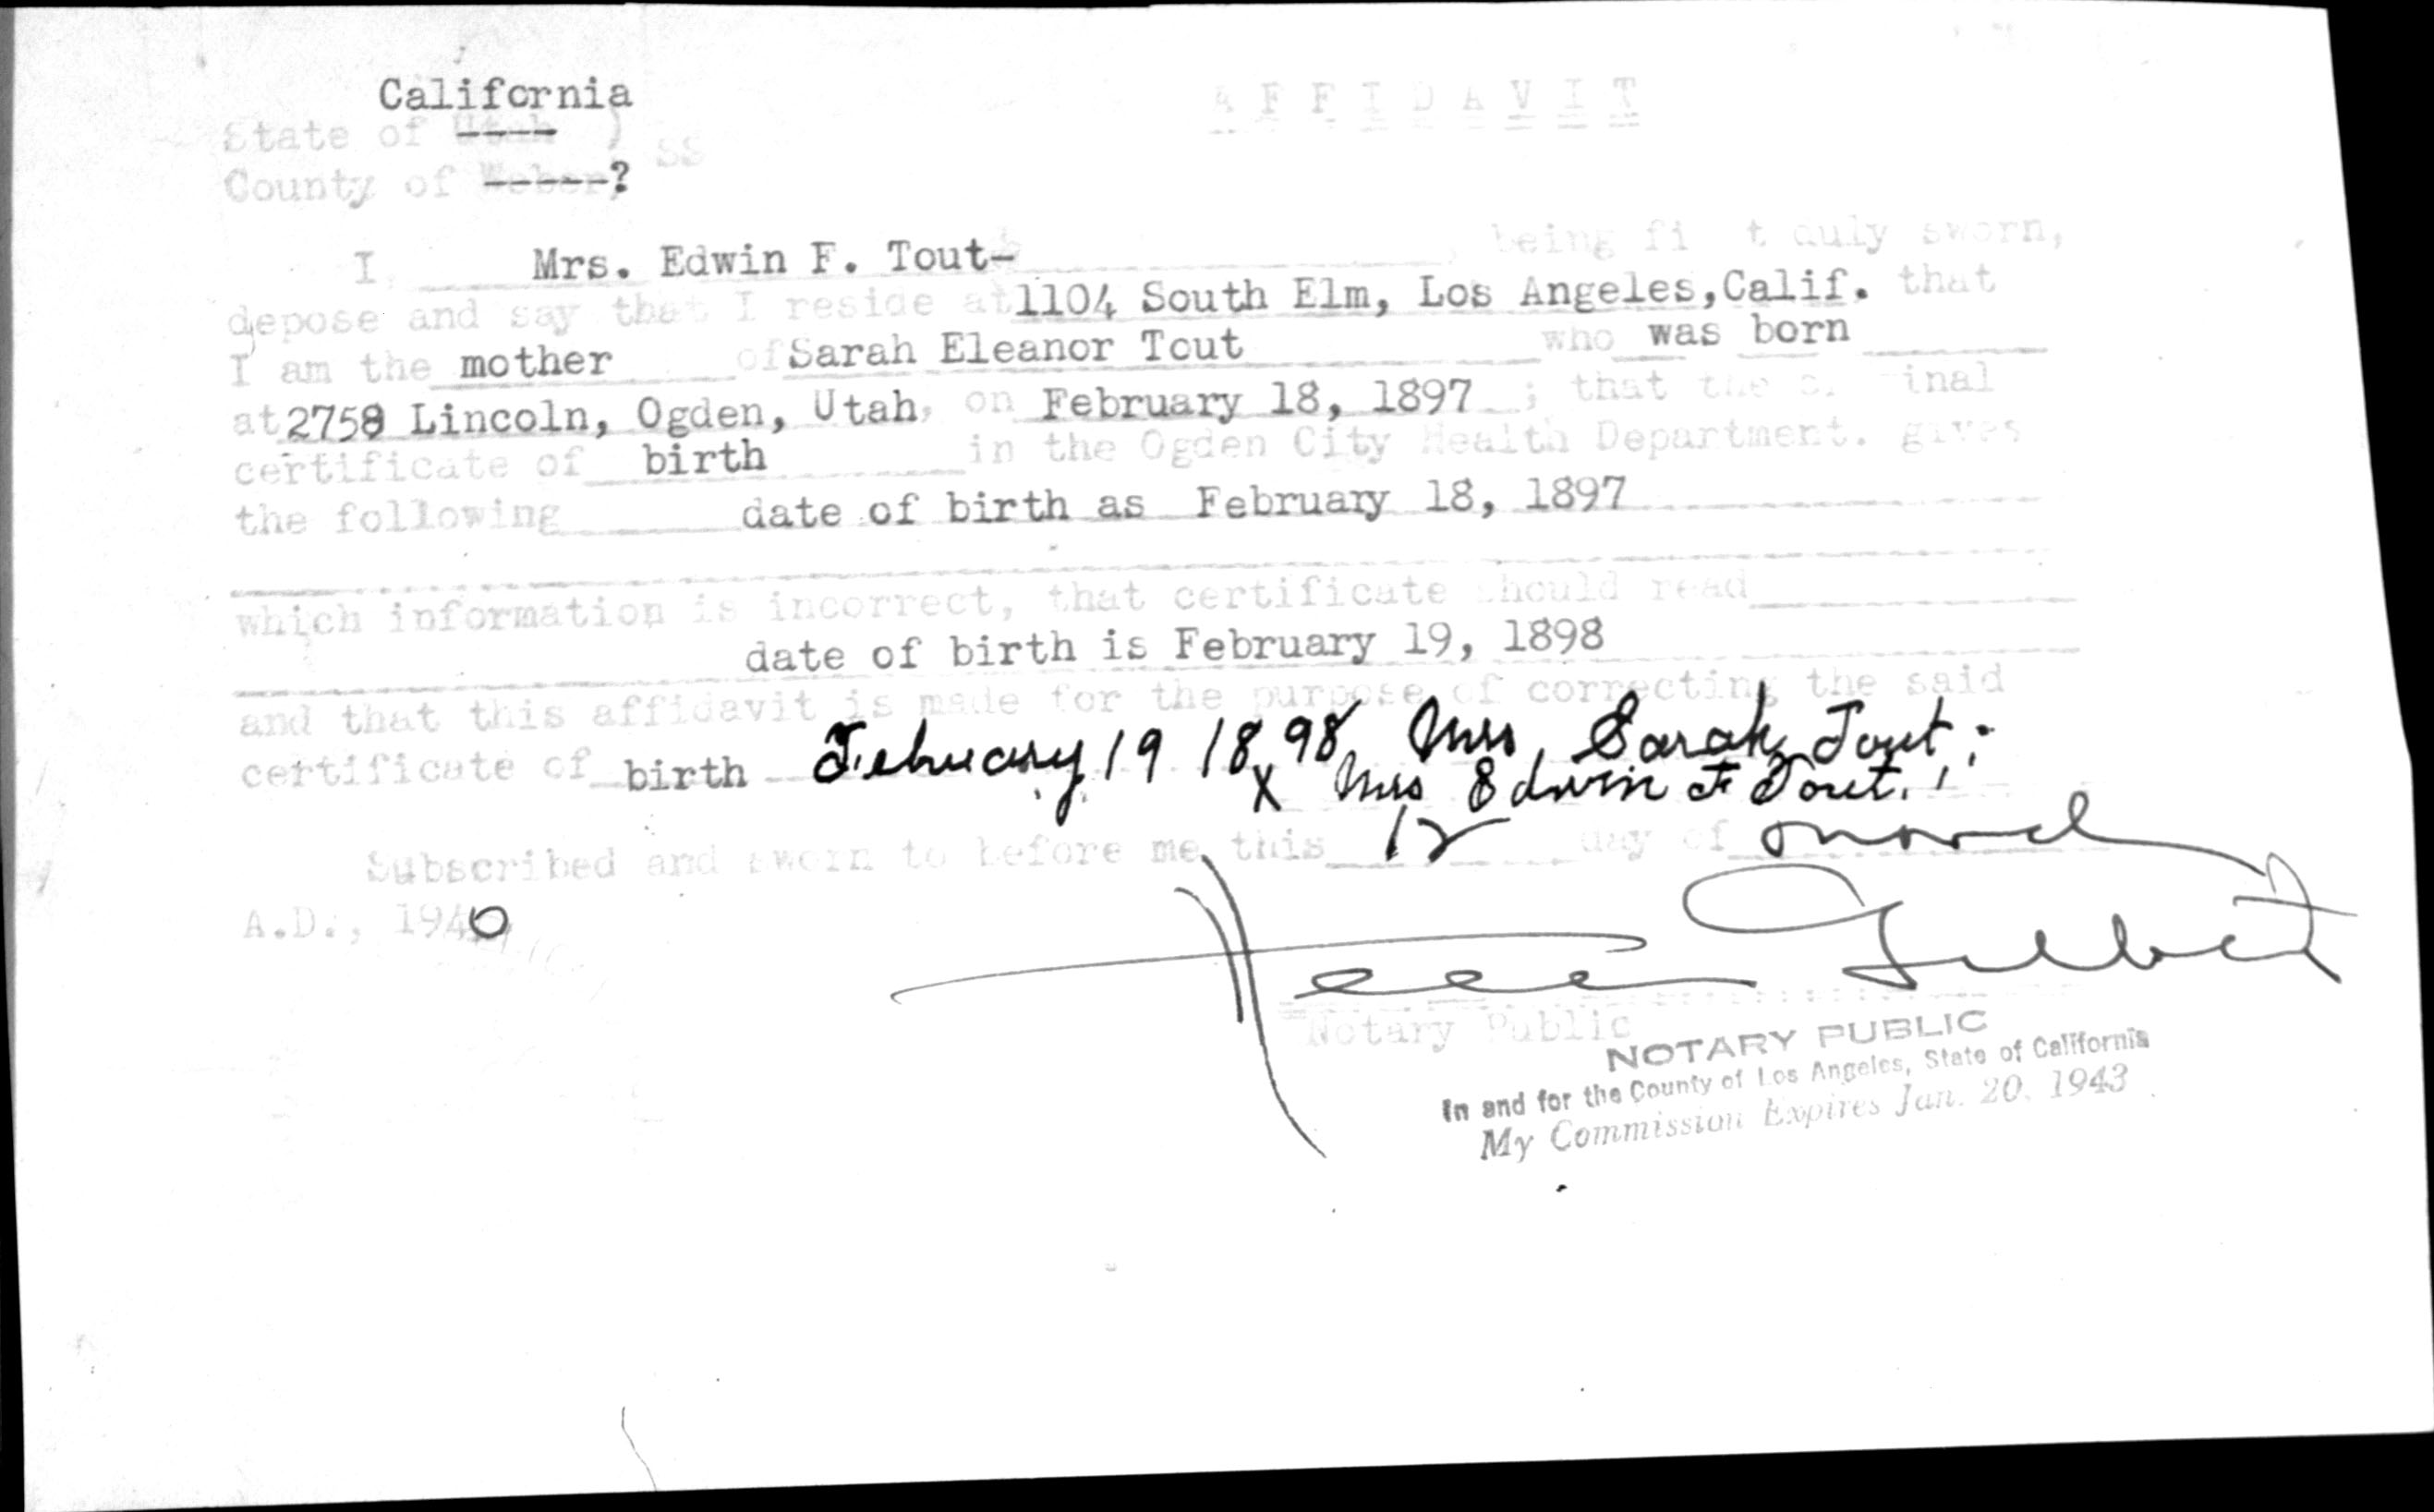 California
AFFIDAVIT
State of Utah )
SS
County of Weber ?
I, Mrs. Edwin F. Tout- , being fi t duly sworn,
depose and say that I reside at 1104 South Elm, Los Angeles, Calif. that
I am the mother of Sarah Eleanor Tout who was born
at 2758 Lincoln, Ogden, Utah, on February 18, 1897 ; that the inal
certificate of birth in the Ogden City Health Department. gives
the following date of birth as February 18, 1897
which information is incorrect, that certificate should read
date of birth is February 19, 1898
and that this affidavit is made for the purpose of correcting the said
certificate of birth February 19 1898 Mrs. Sarah Tout.
X Mrs Edwin F Tout.
Subscribed and sworn to before me this 12 day of March
A.D., 1940
Helen Gilbert
Notary Public
NOTARY PUBLIC
In and for the County of Los Angeles, State of California
My Commission Expires Jan. 20, 1943